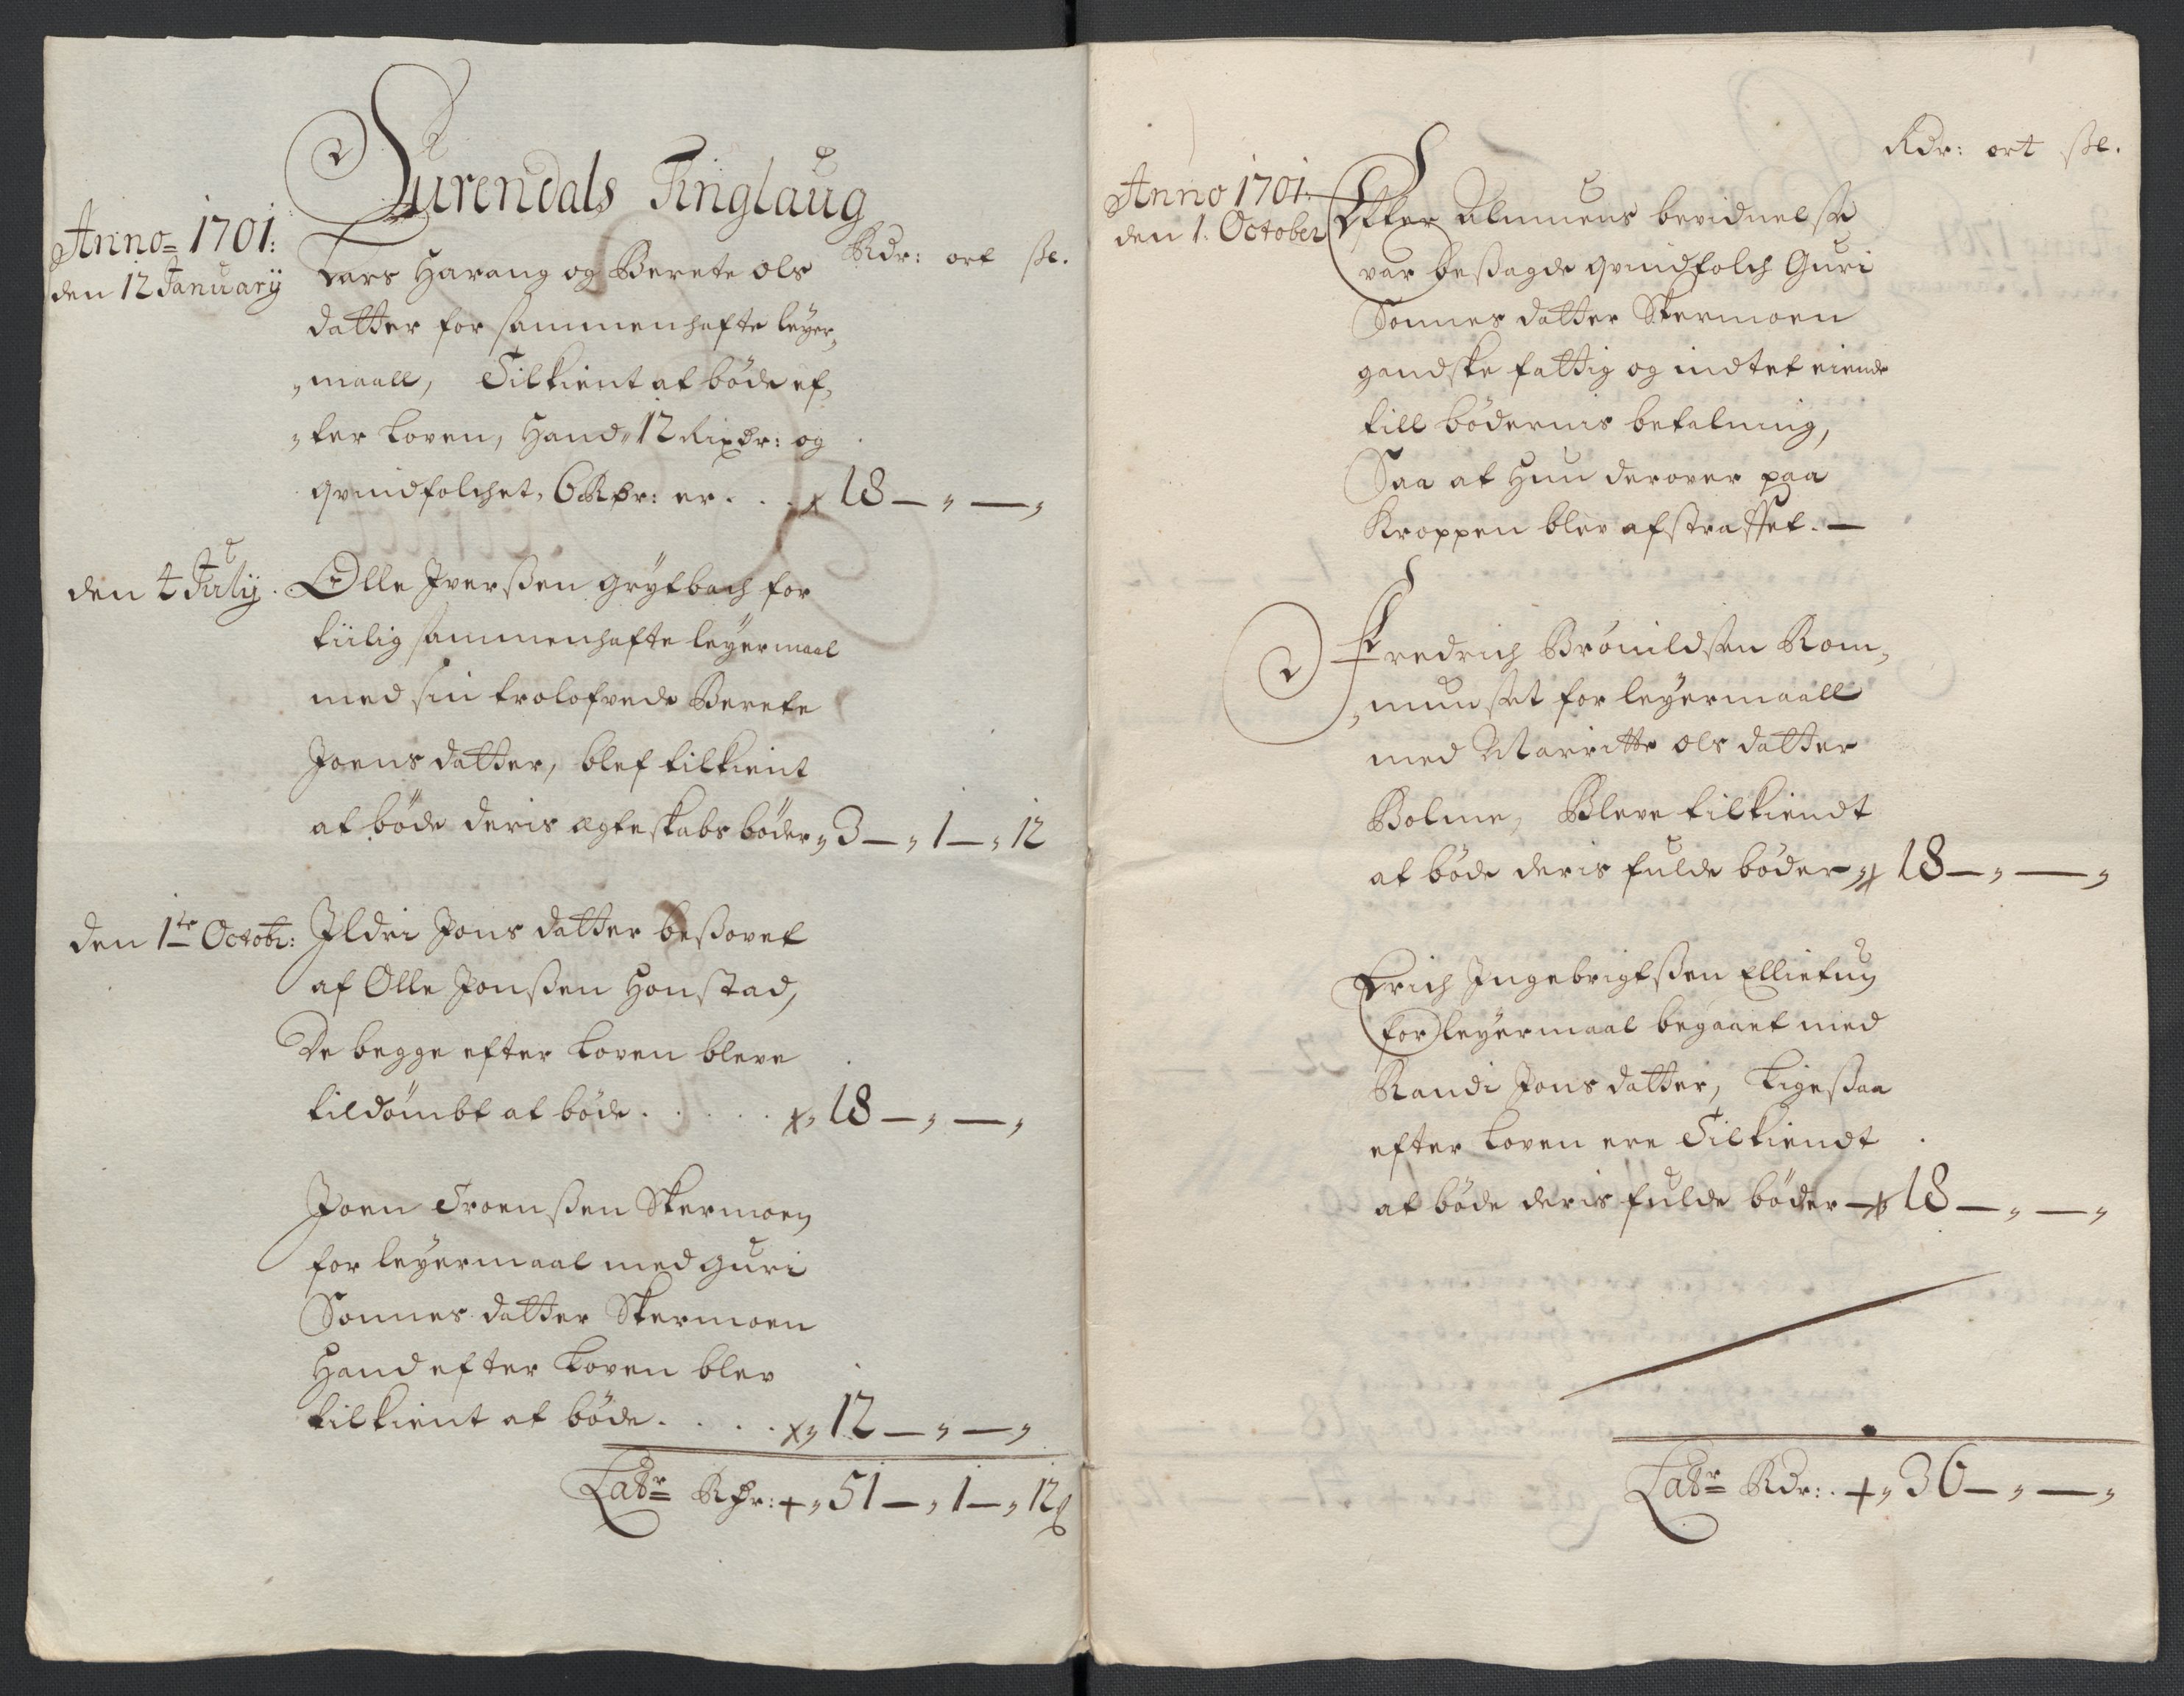 Surendals Tinglaug
Anno 1701:
den 12 January
Rdr: ort sk.
Lars Harang og Berete Ols
datter for sammenhafte leyer,
„maall, Tilkient at böde ef,
„ter Loven, Hand 12 Rixdr: og
qvindfolchet, 6 Rdr: er . . . x 18 — „ — „
den 4 July. Olle Iverssen Grytbach for
tiilig sammenhafte leyermaal
med sin trolofvede Berete
Joens datter, blef tilkient
at böde deris ægteskabs böder „ 3 — „ 1 — „ 12
den 1te Octobr: Ildri Jons datter besovet
af Olle Jonssen Honstad,
De begge efter Loven bleve
tildömbt at böde . . . . . x „ 18 — „ — „
Joen Troenssen Skermoen
for leyermaal med Guri
Sonnes datter Skermoen
Hand efter Loven blev
tilkient at böde . . . . x „ 12 — „ — „
Latr Rdr: + „ 51 — „ 1 — „ 12
Rdr: ort sk.
Anno 1701.
den 1. October Efter Almuens bevidnelse
var bessagde qvindfolch Guri
Sonnes datter Skermoen
gandske fattig og indtet eiende
till bödernis betalning,
Saa at Hun derover paa
Kroppen blev afstraffet. —
Fredrich Brönildsen Rom,
„munset for leyermaall
med Marritte Ols datter
Bolme, Bleve tilkiendt
at böde deris fulde böder „ x 18 — „ — „
Erich Ingebrigtssen Ellietun
for leyermaal begaaet med
Randi Jons datter, Ligessaa
efter Loven ere Tilkiendt
at böde deris fulde böder — x 18 — „ — „
Latr Rdr: . + „ 36 — „ — „